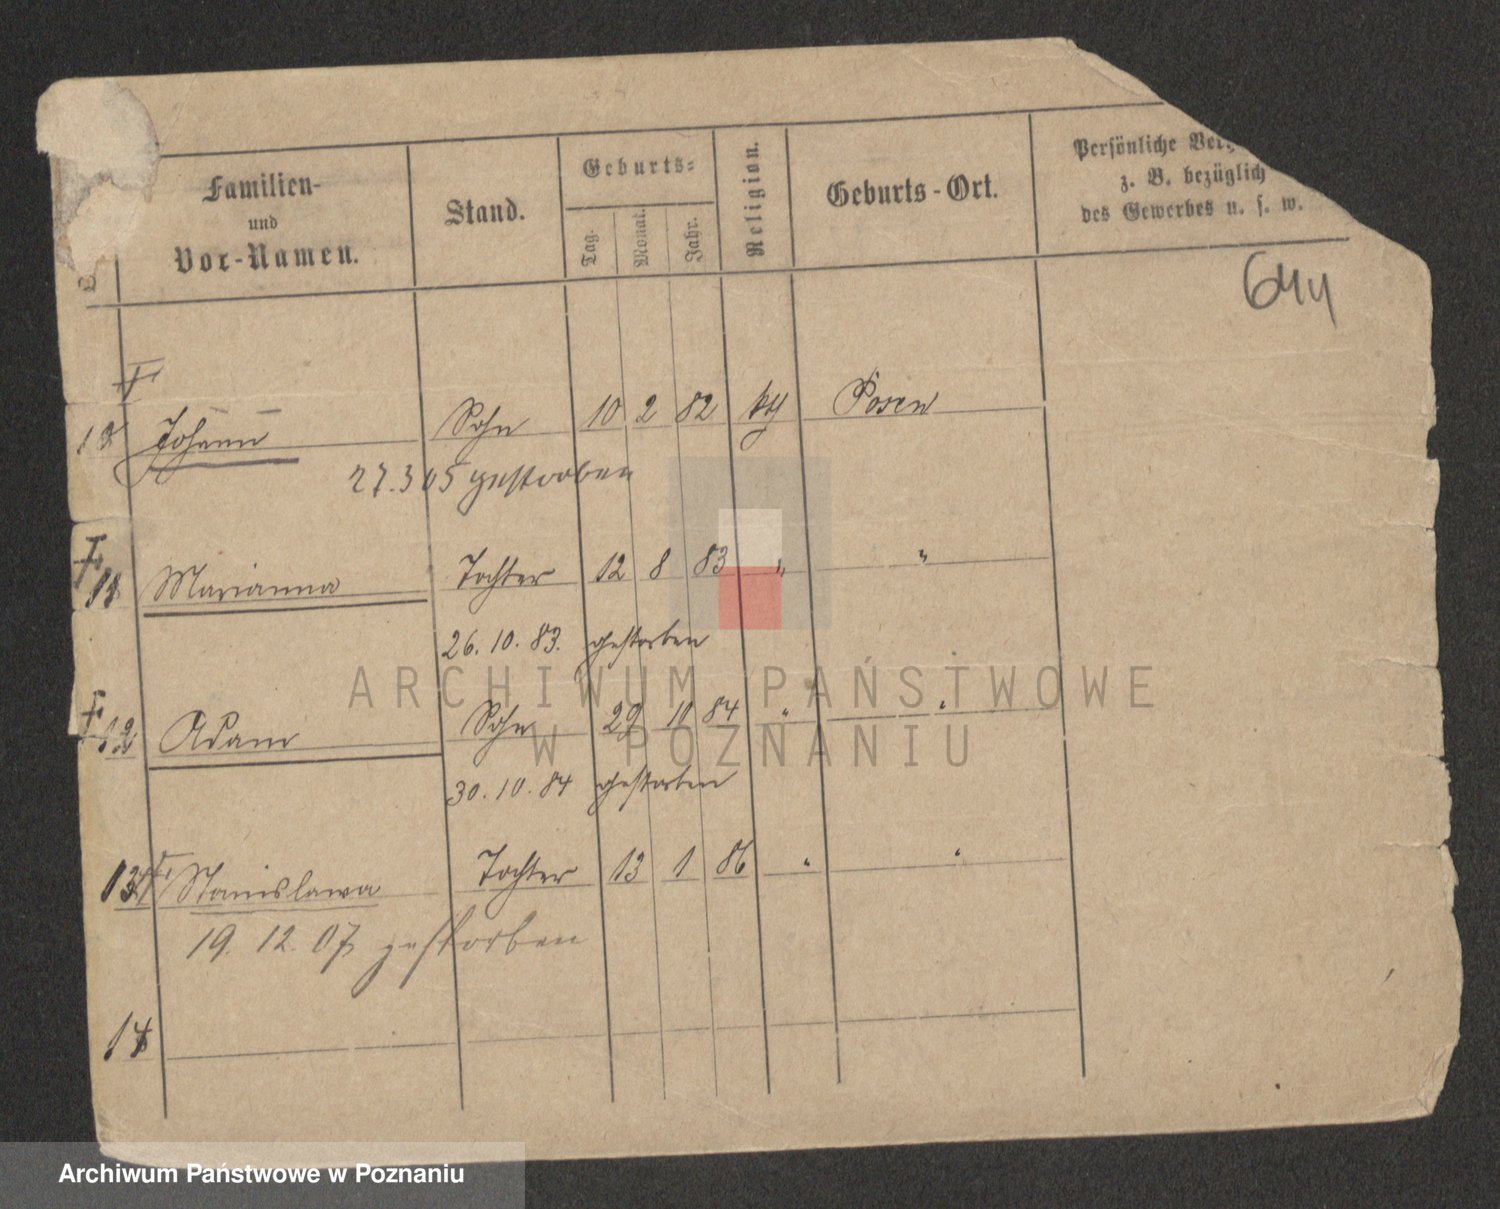 Familien-
und
Vor-Namen.
Stand.
Geburts-
Tag.
Monat.
Jahr.
Religion.
Geburts-Ort.
Persönliche
z. B. bezüglich
des Gewerbes u. s. w.
644
Johann Sohn 10 2 82 Posen
gestorben
11 Marianna Tochter 12 8 83 " "
26. 10. 83. gestorben
12 Adam Sohn 29 10 84 " "
30. 10. 84 gestorben
13 Stanislawa Tochter 13 1 86 " "
19. 12. 07 gestorben
14
ARCHIWUM PAŃSTWOWE
W POZNANIU
Archiwum Państwowe w Poznaniu